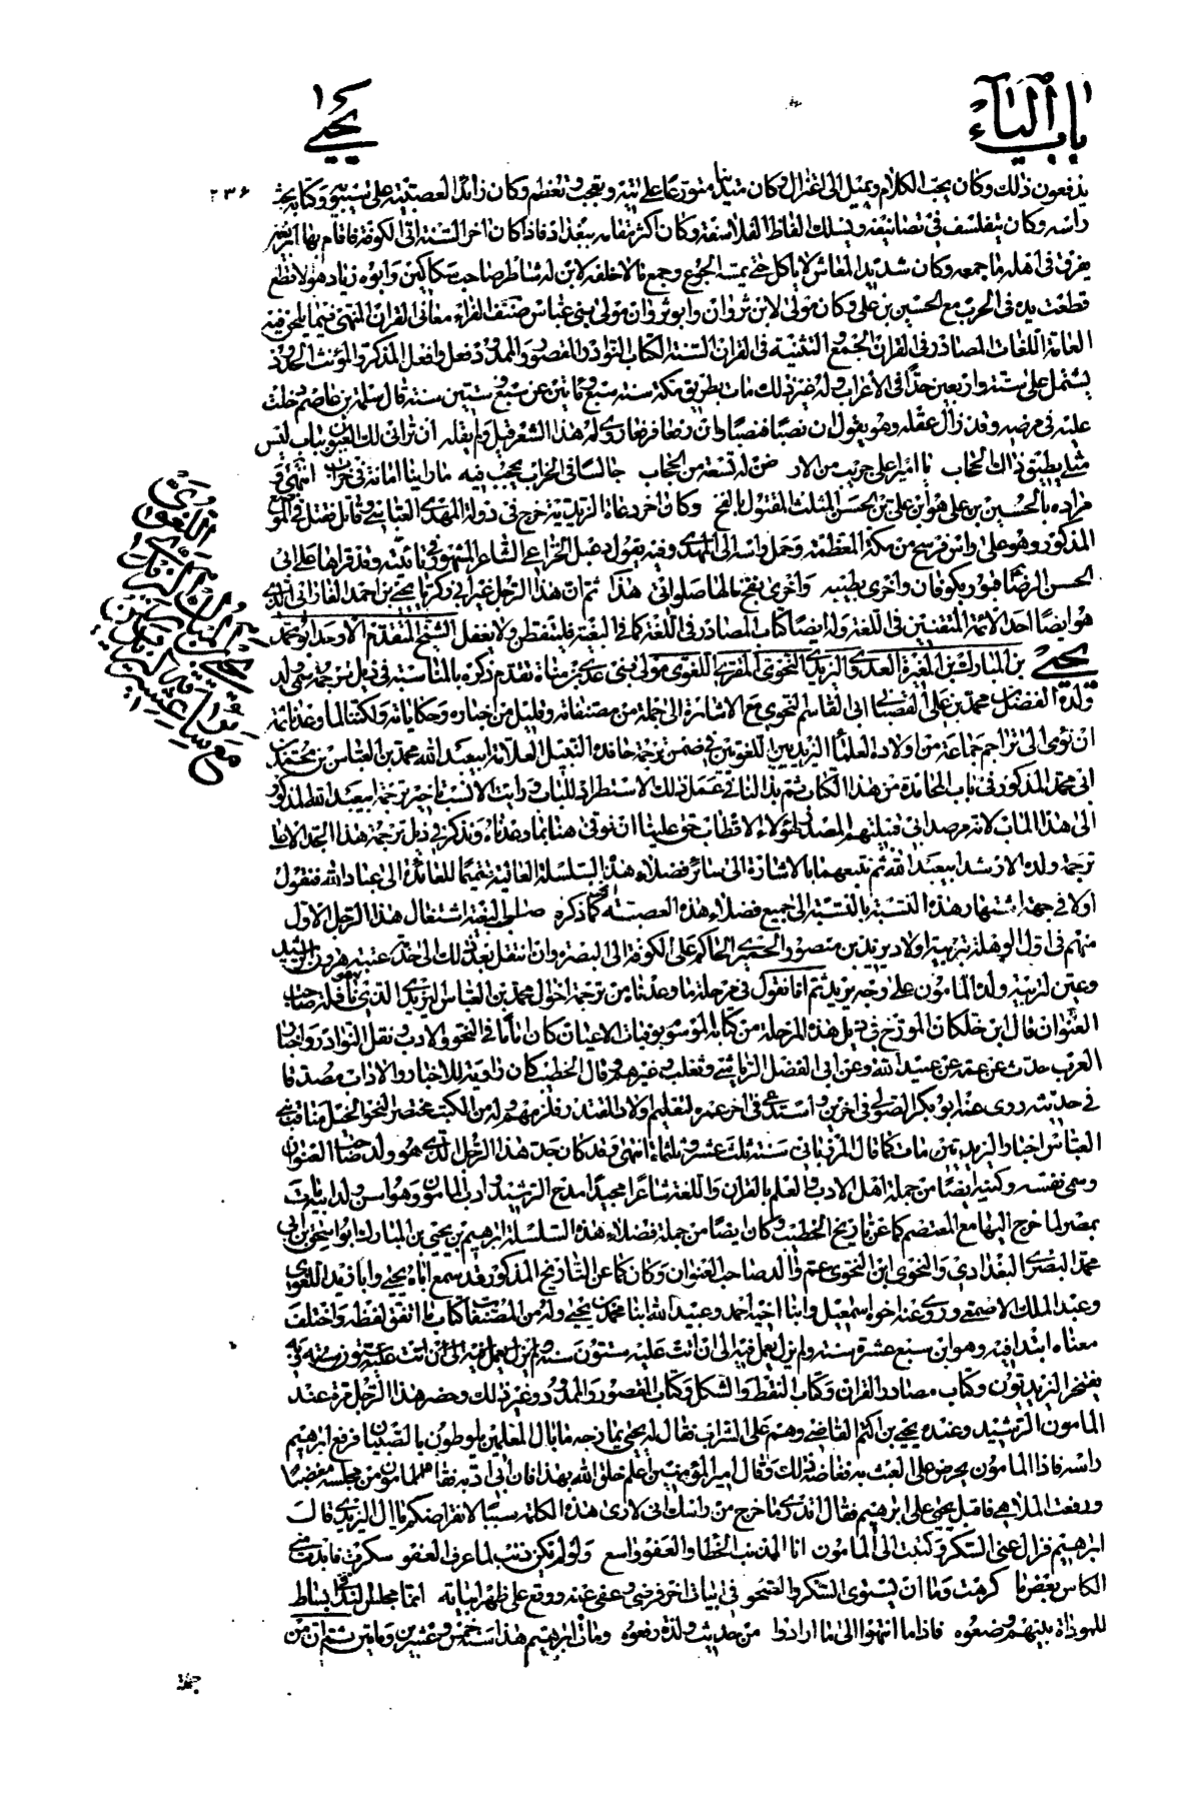 باب الياء
يحيى
٢٣۶
يدفعون ذلك وكان يحب الكلام ويميل الى اعتزال وكان متدينا متورعا على تيه وبعجب وتعظم وكان زائد العصبية على سيبويه وكتابه تحت
راسه وكان يتفلسف في تصانيفه ويسلك الفاظ الفلاسفة وكان اكثر مقامه ببغداد فاذا كان اخر السنة اتى الكوفة فاقام بها اربعين
يفرق في اهله ما جمعه وكان شديد المعاش لا ياكل حتى يمسه الجوع وجمع مالا خلفه لابن له شاطر صاحب سكاكين وابوه زياد هو الاقطع
قطعت يده في الحرب مع الحسين بن علي وكان مولى لابن ثروان وابو ثروان مولى بني عباس صنف الفراء معاني القران البهي فيما يلحن فيه
العامة اللغات المصادر في القران الجمع والتثنية في القران السنة الكتاب النوادر المقصور والممدود فعل وافعل المذكر والمؤنث الحدود
يشتمل على ستة واربعين حدا في الاعراب وله غير ذلك مات بطريق مكة سنة سبع وماتين عن سبع وستين سنة قال سلمة بن عاصم دخلت
عليه في مرضه وقد زال عقله وهو يقول ان نصبا فنصبا وان رفعا فرفعا روى له هذا الشعر قيل ولم يقله ان تراني لك العيون بباب ليس
مثلي يطيق ذل الحجاب يا امير على جريب من الار ض له تسعة من الحجاب جالسا في الخراب يحجب فيه ما راينا امارة في خراب انتهى و
مراده بالحسين بن علي هو ابن علي بن الحسن المثلث المقتول بالفخ وكان اخر دعاة الزيدية خرج في دولة المهدي العباسي وقاتل فقتل في الموضع
المذكور وهو على راس فرسخ من مكة المعظمة وحمل راسه الى المهدي وفيه يقول دعبل الخزاعي الشاعر المشهور في تائيته وقد قراها على ابي
الحسن الرضا قبور بكوفان واخرى بطيبة واخرى بفخ نالها صلواتي هذا ثم ان هذا الرجل غير ابي زكريا يحيى بن احمد الفارابي الذي
هو ايضا احد الائمة المتقنين في اللغة وله ايضا كتاب المصادر في اللغة كما في البغية فليتفطن ولا يغفل الشيخ المتقدم الاوحد ابو محمد
يحيى بن المبارك بن المغيرة العدوي اليزيدي النحوي المقري اللغوي مولى بني عدي بن مناة تقدم ذكره بالمناسبة في ذيل ترجمة سمي
ولده الفضل بن محمد بن علي القصباني ابي القاسم النحوي مع الاشارة الى جملة من مصنفاته وقليل من اخباره وحكاياته ولكنا لما وعدنا ثمة
ان نومي الى تراجم جماعة من اولاده العلماء اليزيديين اللغويين في ضمن ترجمة حافده النبيل العلامة ابي عبد الله محمد بن العباس بن محمد بن
ابي محمد المذكور في باب المحامدة من هذا الكتاب ثم بدا لنا في عمل ذلك الاستطراد للباب ورايت الانسب تاخير ترجمة ابي عبد الله المذكور
الى هذا الباب لانه مرصد ابي قبيلتهم المصدر لهؤلاء الاقطاب حق علينا ان نوفي هنا بما وعدناه ونذكر في ذيل ترجمة هذا الجد الاعلى
ترجمة ولده الارشد ابي عبد الله ثم نتبعهما بالاشارة الى سائر فضلاء هذه السلسلة العالية تتميما للعائدة الى عباد الله فنقول
اولا في جهة اشتهار هذه النسبة بالنسبة الى جميع فضلاء هذه العصبة كما ذكره صاحب البغية اشتغال هذا الرجل الاول
منهم في اول الوهلة بتربية اولاد يزيد بن منصور الحميري الحاكم على الكوفة الى البصرة وان انتقل بعد ذلك الى خدمة عتبة هرون الرشيد
وعين لتربية ولده المامون على وجه يزيد ثم انا نقول في مرحلة ما وعدنا من ترجمة احوال محمد بن العباس اليزيدي الذي نافلة صاحب
العنوان قال ابن خلكان المورخ في ذيل هذه المرحلة من كتابه الموسوم بوفيات الاعيان كان اماما في النحو والادب ونقل النوادر واخبار
العرب حدث عن عمه عن عبيد الله وعن ابي الفضل الرياشي وثعلب وغيرهم وقال الخطيب كان راوية للاخبار والاداب مصدقا
في حديثه روى عنه ابو بكر الصولي في اخرين واستدعي في اخر عمره لتعليم اولاد المقتدر فلزمهم وله من الكتب مختصر النحو الخيل مناقب بني
العباس اخبار اليزيديين مات كما قال المرزباني سنة ثلث عشرة وثلثمائة انتهى وقد كان جد هذا الرجل الذي هو ولد صاحب العنوان
وسمي نفسه وكنيه ايضا من جملة اهل الادب والعلم بالقران واللغة شاعرا مجيدا مدح الرشيد وادب المامون وهو اسن ولد ابيه مات
بمصر لما خرج اليها مع المعتصم كما عن تاريخ الخطيب وكان ايضا من جملة فضلاء هذه السلسلة ابرهيم بن يحيى بن المبارك ابو اسحق بن ابي
محمد البصري البغدادي النحوي ابن النحوي عم والد صاحب العنوان وكان كما عن التاريخ المذكور قد سمع اباه يحيى وابا زيد اللغوي
وعبد الملك الاصمعي وروى عنه اخوه اسمعيل وابنا اخيه احمد وعبيد الله ابنا محمد بن يحيى وله من المصنفات كتاب ما اتفق لفظه واختلف
معناه ابتدا فيه وهو ابن سبع عشرة سنة ولم يزل يعمل فيه الى ان اتت عليه ستون سنة وبه
يفتخر اليزيديون وكتاب مصادر القران وكتاب النقط والشكل وكتاب المقصور والممدود وغير ذلك وحضر هذا الرجل مرة عند
المامون الرشيد وعنده يحيى بن اكثم القاضي وهم على الشراب فقال له يحيى يمازحه ما بال المعلمين يلوطون بالصبيان فرفع ابرهيم
راسه فاذا المامون يحرض على العبث به فغاضه ذلك وقال امير المؤمنين اعلم خلق الله بهذا فان ابي ادبه فقام المامون من مجلسه مغضبا
ورفعت الملاهي فاقبل يحيى على ابرهيم فقال اتدري ما خرج من راسك اني لارى هذه الكلمة سببا لانقراضكم يا ال اليزيدي قال
ابرهيم فزال عني السكر وكتبت الى المامون انا المذنب الخطا والعفو واسع ولو لم يكن ذنب لما عرف العفو سكرت فابدت مني
الكاس بعض ما كرهت وما ان يستوي السكر والصحو في ابيات اخر فرضي وعفى عنه ووقع على ظهر ابياته انما مجلس الندامى بساط
للمودات بينهم وضعوه فاذا ما انتهوا الى ما ارادوا من حديث ولذة رفعوه ومات ابرهيم هذا سنة خمس وعشرين ومائتين ثم ان من
جملة
يحيى بن المبارك اليزيدي
اللغوي
مع ساير